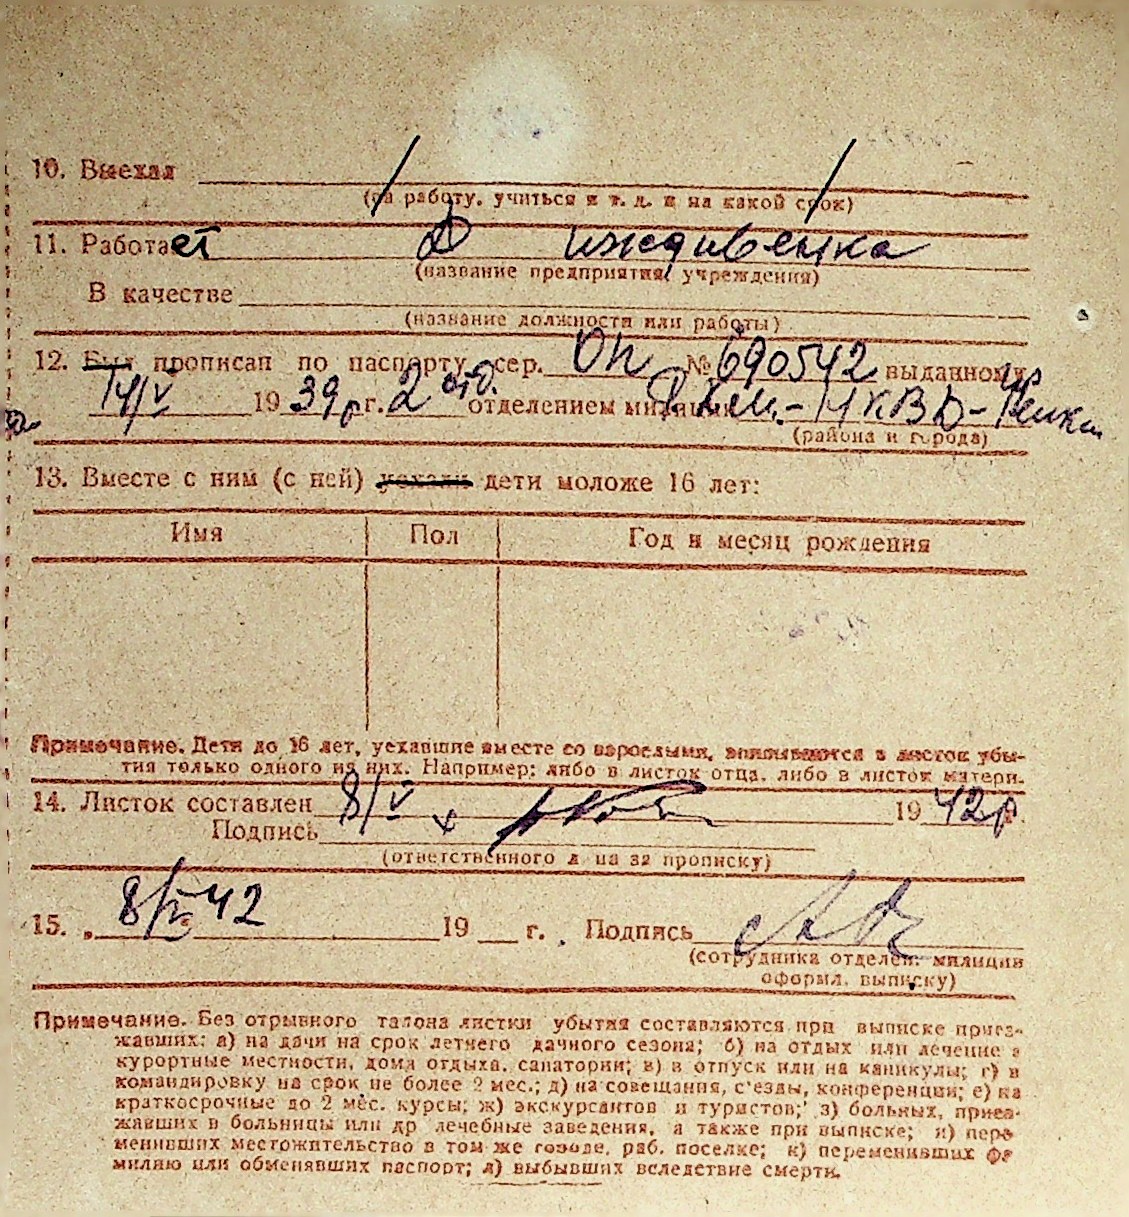 10. Выехал
(на работу, учиться и т. д. и на какой срок)
11. Работает иждивенка
(название предприятия, учреждения)
В качестве
(название должности или работы)
12. Был прописан по паспорту сер. ОП № 690542 выданному
14/V 1939 г. 2 отд. отделением милиции НКВД
(района и города)
13. Вместе с ним (с ней) уехали дети моложе 16 лет:
Имя Пол Год и месяц рождения
Примечание. Дети до 16 лет, уехавшие вместе со взрослыми, вписываются в листок убы-
тия только одного из них. Например: либо в листок отца, либо в листок матери.
14. Листок составлен 8/V 1942 г.
Подпись
(ответственного лица за прописку)
15. „ 8/V 42 19 г. Подпись
(сотрудника отделен. милиции
оформл. выписку)
Примечание. Без отрывного талона листки убытия составляются при выписке приез-
жавших: а) на дачи на срок летнего дачного сезона; б) на отдых или лечение в
курортные местности, дома отдыха, санатории; в) в отпуск или на каникулы; г) в
командировку на срок не более 2 мес.; д) на совещания, с'езды, конференции; е) на
краткосрочные до 2 мес. курсы; ж) экскурсантов и туристов; з) больных, приез-
жавших в больницы или др лечебные заведения, а также при выписке; и) пере-
менивших местожительство в том же городе, раб. поселке; к) переменивших фа-
милию или обменявших паспорт; л) выбывших вследствие смерти.